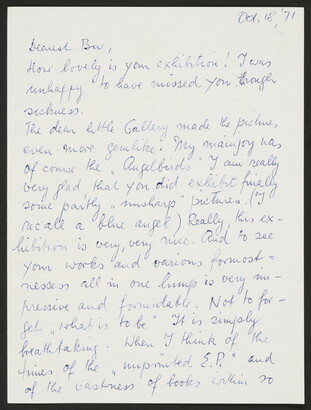 Oct. 15, '71
Dearest Bw,
How lovely is your exhibition! I was
unhappy to have missed you through
sickness.
The dear little Gallery made the pictures
even more gemlike. My main joy was
of course the „Angelbirds" I am really
very glad that you did exhibit finally
some partly „unsharp" pictures. (I
recall a blue angel) Really, this ex-
hibition is very, very nice. And to see
your works and various
all in one lump is very im-
pressive and formidable. Not to for-
get „what is to be" It is simply
breathtaking. When I think of the
times of the „unprinted E.P." and
of the vastness of books within so